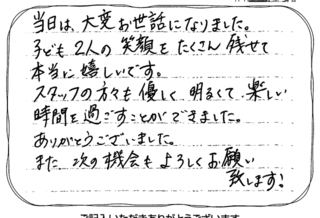 当日は、大変お世話になりました。
子ども2人の笑顔をたくさん残せて
本当に嬉しいです。
スタッフの方々も優しく明るくて、楽しい
時間を過ごすことができました。
ありがとうございました。
また次の機会もよろしくお願い
致します!
ご記入いただきありがとうございます